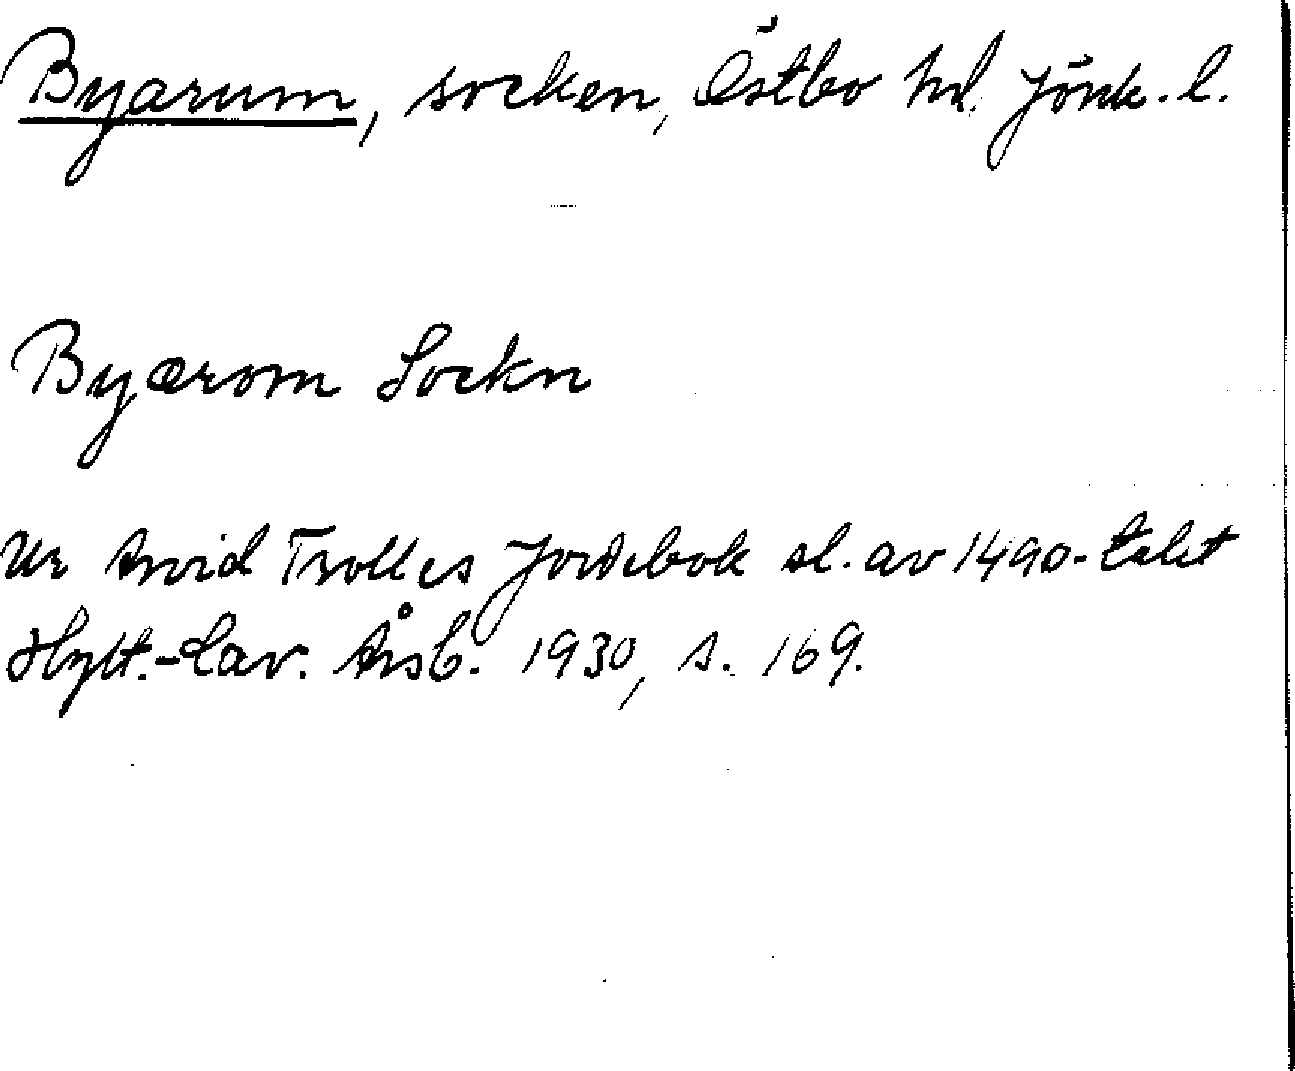 Byarum, socken, Östbo hd. Jönk. l.
Byærom Sockn
Ur Arvid Trolles Jordebok sl. av 1490-talet
Hylt.-Cav. Årsb. 1930, s. 169.